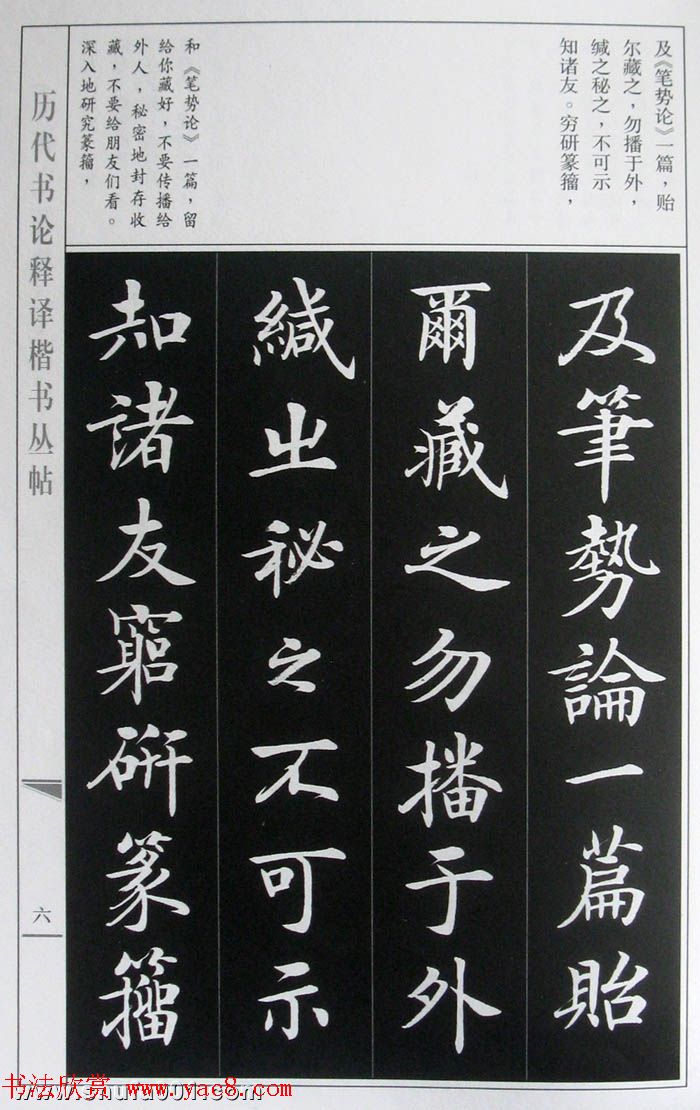 及《笔势论》一篇，贻
尔藏之，勿播于外，
缄之秘之，不可示
知诸友。穷研篆籀，
和《笔势论》一篇，留
给你藏好，不要传播给
外人，秘密地封存收
藏，不要给朋友们看。
深入地研究篆籀，
及筆勢論一篇貽
爾藏之勿播于外
緘之秘之不可示
知諸友窮研篆籀
历代书论释译楷书丛帖
六
书法欣赏 www.yac8.com